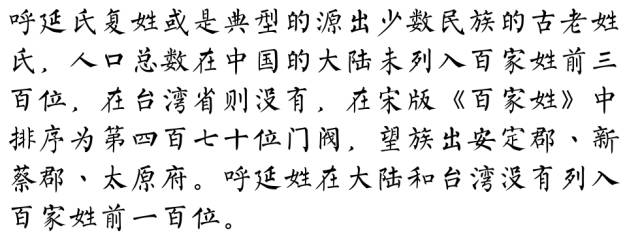 呼延氏复姓或是典型的源出少数民族的古老姓
氏，人口总数在中国的大陆未列入百家姓前三
百位，在台湾省则没有，在宋版《百家姓》中
排序为第四百七十位门阀，望族出安定郡、新
蔡郡、太原府。呼延姓在大陆和台湾没有列入
百家姓前一百位。